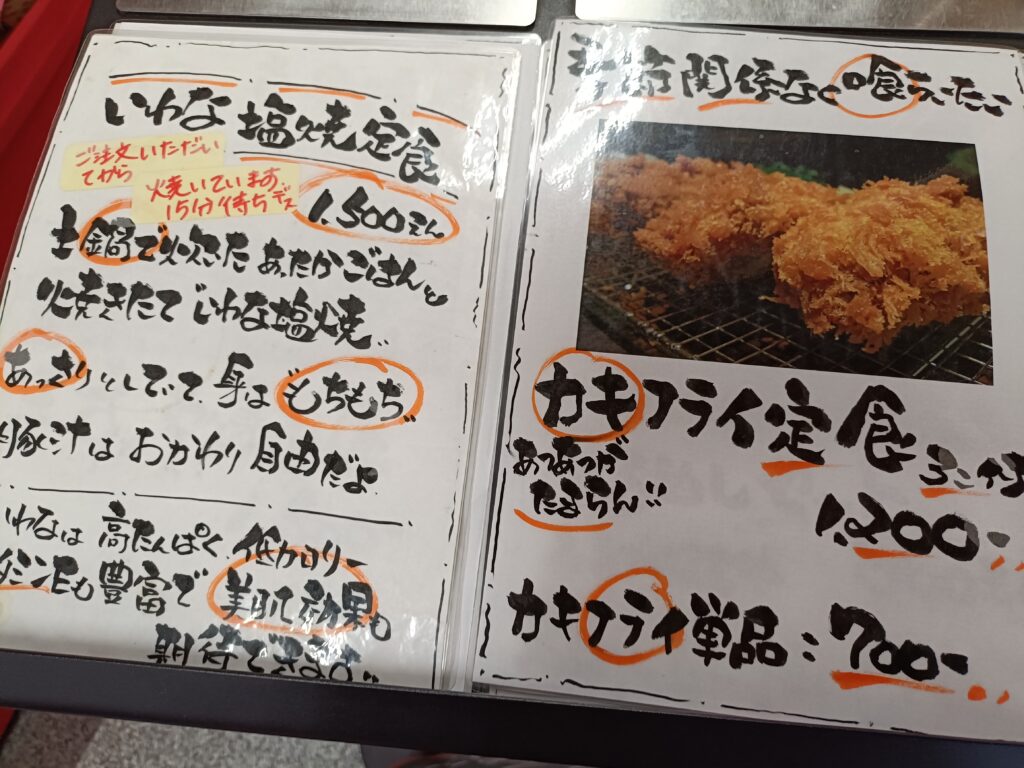 いわな塩焼定食
ご注文いただい
てから
焼いています
15分待ちデス
1,500えん
土鍋で炊きたあったかごはんと
焼きたていわな塩焼
あっさりとしてて、身は"もちもち"
豚汁はおかわり自由だよ
いわなは高たんぱく低カロリー
タミンEも豊富で美肌効果も
期待できます!!
季節関係なく喰らいたい
カキフライ定食
5こ付
あつあつが
たまらん!!
1,200-
カキフライ単品:700-